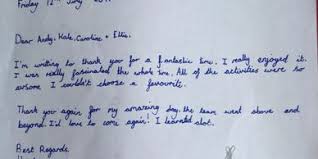 Friday 12th July
Dear Andy, Kate, Caroline + Ellie,
I'm writing to thank you for a fantastic time. I really enjoyed it.
I was really fascinated the whole time. All of the activities were so
awsome I couldn't choose a favourite.
Thank you again for my amazing day, the team went above and
beyond. I'd love to come again! I learnt alot.
Best Regards,